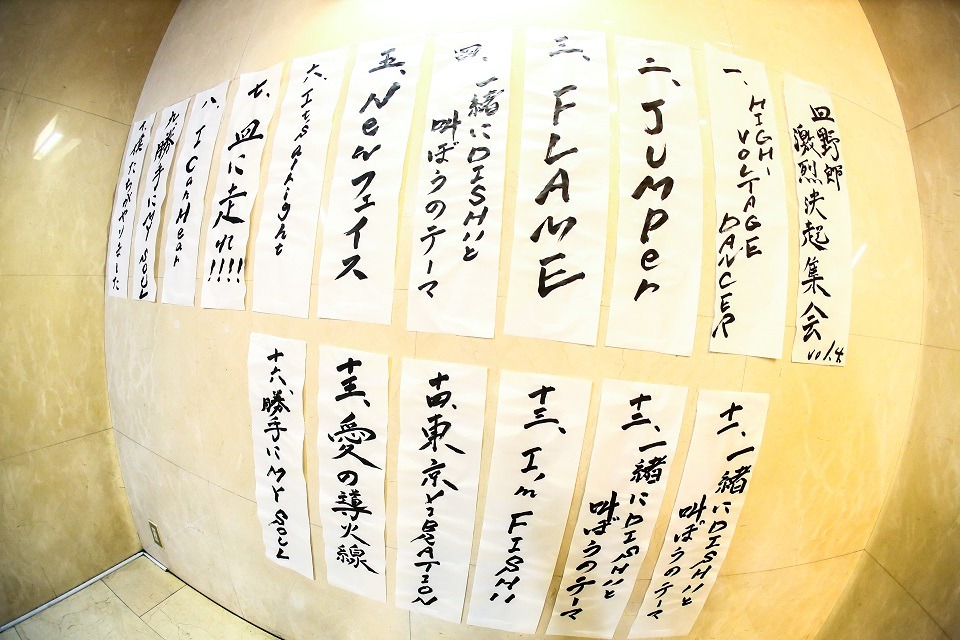 皿野郎
激烈決起集会
vol.4
一、HIGH-
VOLTAGE
DANCER
二、JUMPer
三、FLAME
四、一緒にDISH//と
叫ぼうのテーマ
五、Newフェイス
六、It's alright
七、皿に走れ!!!!
八、I Can Hear
九、勝手にMY SOUL
十、俺たちがやりました
十一、一緒にDISH//と
叫ぼうのテーマ
十二、一緒にDISH//と
叫ぼうのテーマ
十三、I'm FISH//
十四、東京VIBRATION
十五、愛の導火線
十六、勝手にMY SOUL